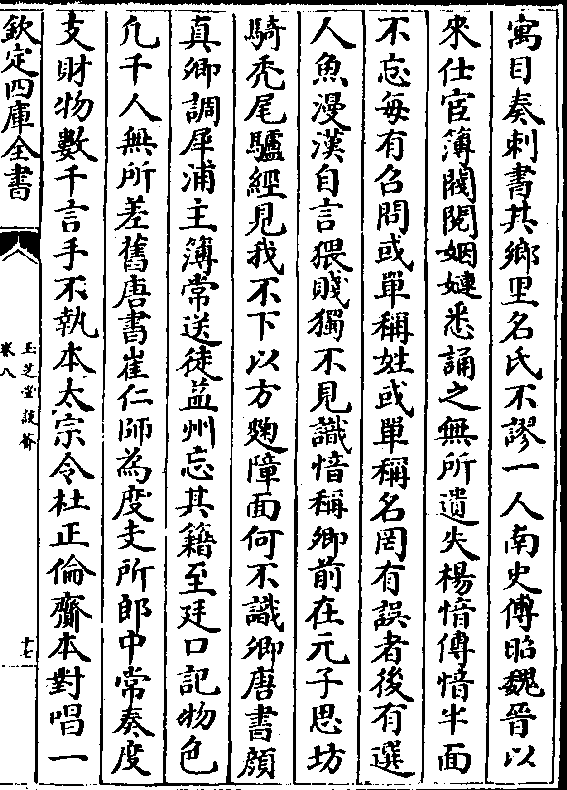 寓目奏刺書其鄉里名氏不謬一人南史傅昭魏晉以
來仕宦簿閥閱姻媾悉誦之無所遺失楊愔傳愔半面
不忘每有召問或單稱姓或單稱名罔有誤者後有選
人魚漫漢自言猥賤獨不見識愔稱卿前在元子思坊
騎禿尾驢經見我不下以方麴障面何不識卿唐書顔
真卿調犀浦主簿常送徒益州忘其籍至廷口記物色
凢千人無所差舊唐書崔仁師為度支所郎中常奏度
支財物數千言手不執本太宗令杜正倫齎本對唱一
欽定四庫全書
玉芝堂談薈
卷八
十七